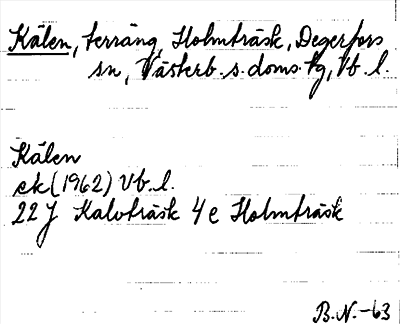 Kälen, terräng, Holmträsk, Degerfors
sn, Västerb. s. doms. tg, Vb. l.
Kälen
ek (1962) Vb. l.
22 J Kalvträsk 4 e Holmträsk
B.N.-63